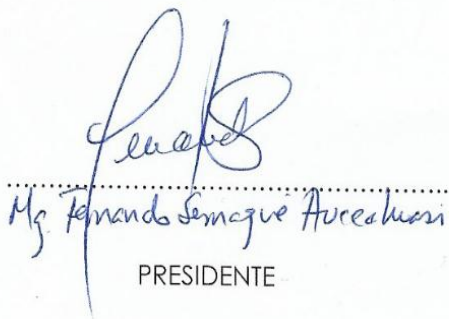 Mg. Fernando Semaqué Auccahuasi
PRESIDENTE